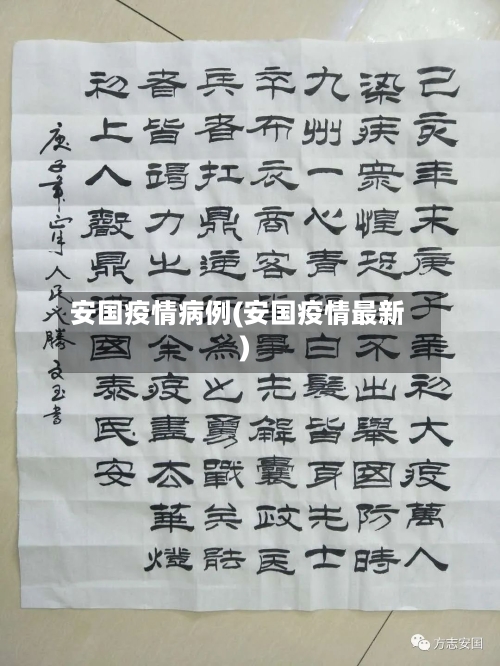 己亥年末庚子年初大疫萬人
染疾衆惶恐不出舉國防時
九州一心青白髮皆身先士
卒布衣商客爭先解囊政医
兵者扛鼎逆為之勇戰矣能
者皆竭力之余疫盡去華燈
初上人觀鼎國泰民安
庚子年人民必勝文玉書
安国疫情病例(安国疫情最新
)
方志安国